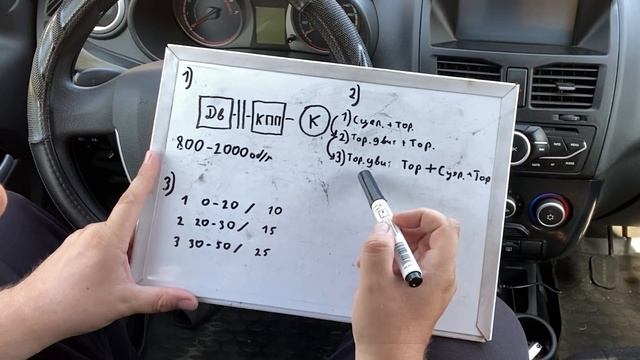 1)
Дв -||- КПП - К
800-2000 об/г
2)
1) Сцеп. + Тор.
2) Тор. двиг + Тор.
3) Тор. двиг Тор + Сцеп. + Тор
3)
1 0-20 / 10
2 20-30 / 15
3 30-50 / 25